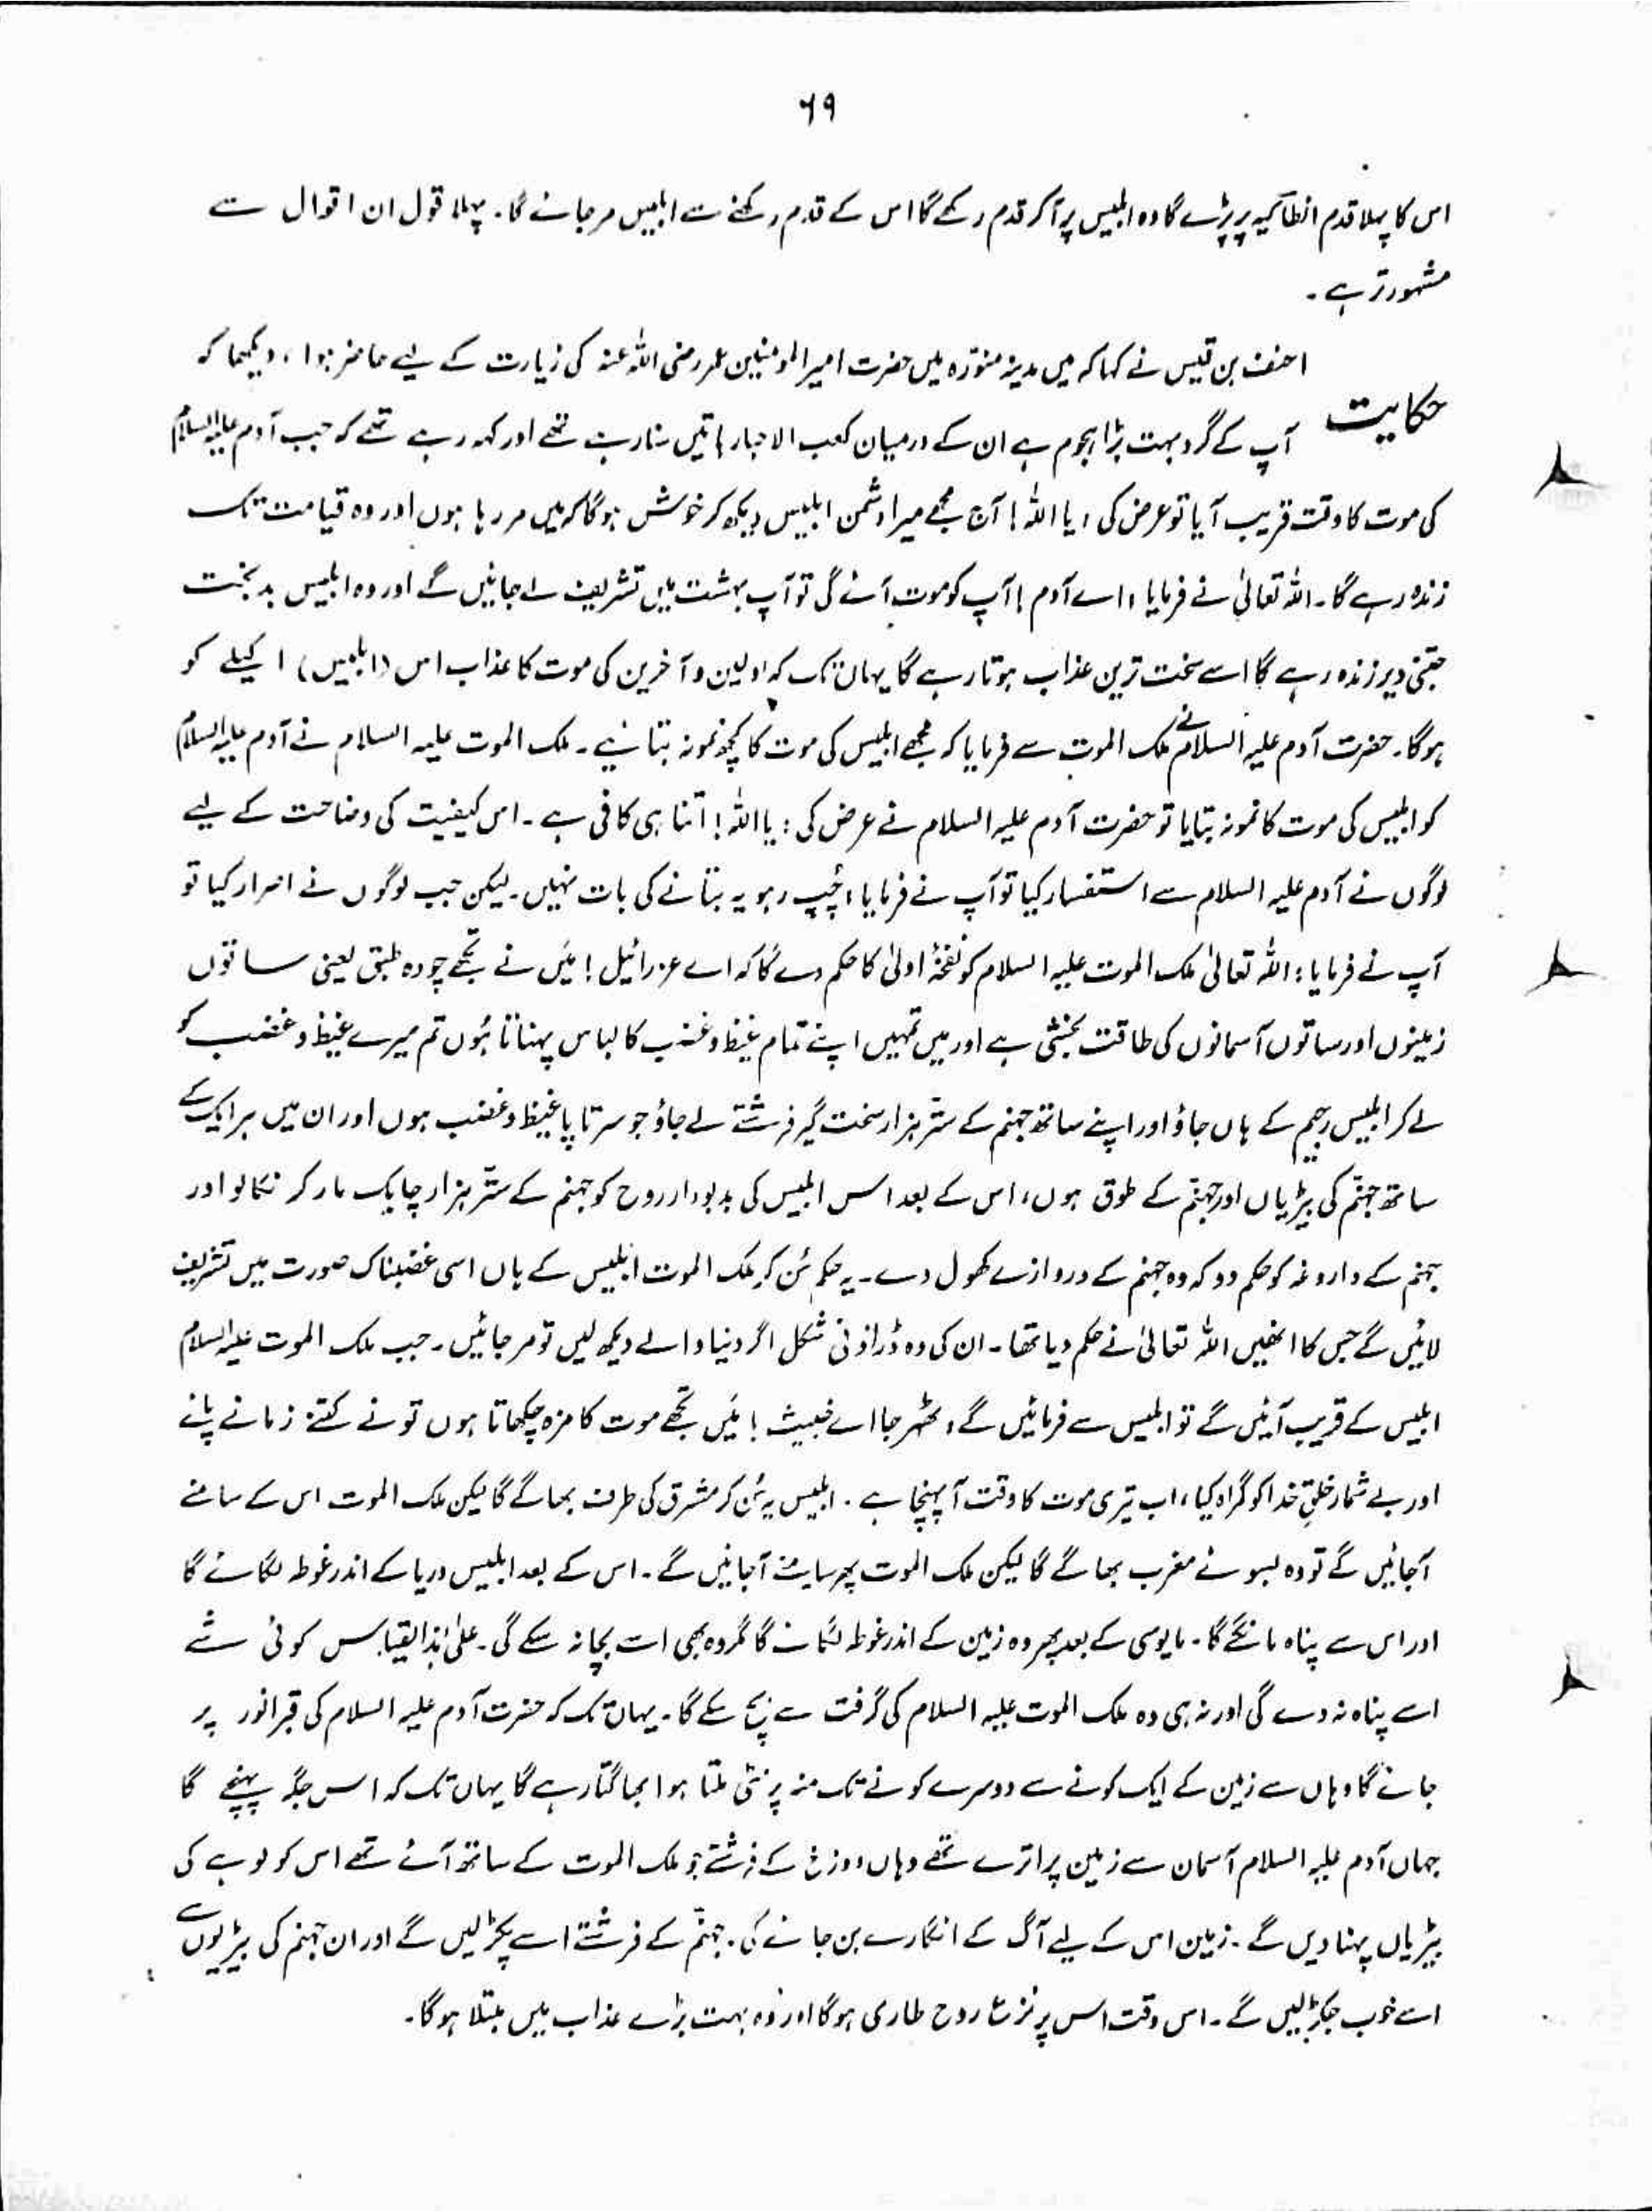 ۶۹
اس کا پہلا قدم انطاکیہ پر پڑے گا وہ ابلیس پر آ کر قدم رکھے گا اس کے قدم رکھنے سے ابلیس مر جائے گا۔ پہلا قول ان اقوال سے
مشہور تر ہے۔
احنف بن قیس نے کہا کہ میں مدینہ منورہ میں حضرت امیر المومنین عمر رضی اللہ عنہ کی زیارت کے لیے حاضر ہوا، دیکھا کہ
حکایت
آپ کے گرد بہت بڑا ہجوم ہے ان کے درمیان کعب الاحبار باتیں سنا رہے تھے اور کہہ رہے تھے کہ جب آدم علیہ السلام
کی موت کا وقت قریب آیا تو عرض کی، یا اللہ! آج مجھے میرا دشمن ابلیس دیکھ کر خوش ہوگا کہ میں مر رہا ہوں اور وہ قیامت تک
زندہ رہے گا۔ اللہ تعالیٰ نے فرمایا، اے آدم! آپ کو موت آئے گی تو آپ بہشت میں تشریف لے جائیں گے اور وہ ابلیس بدبخت
جتنی دیر زندہ رہے گا اسے سخت ترین عذاب ہوتا رہے گا یہاں تک کہ اولین و آخرین کی موت کا عذاب اس (ابلیس) اکیلے کو
ہوگا۔ حضرت آدم علیہ السلام نے ملک الموت سے فرمایا کہ مجھے ابلیس کی موت کا کچھ نمونہ بتائیے۔ ملک الموت علیہ السلام نے آدم علیہ السلام
کو ابلیس کی موت کا نمونہ بتایا تو حضرت آدم علیہ السلام نے عرض کی: یا اللہ! اتنا ہی کافی ہے۔ اس کیفیت کی وضاحت کے لیے
لوگوں نے آدم علیہ السلام سے استفسار کیا تو آپ نے فرمایا، چُپ رہو یہ بتانے کی بات نہیں۔ لیکن جب لوگوں نے اصرار کیا تو
آپ نے فرمایا: اللہ تعالیٰ ملک الموت علیہ السلام کو نفخۂ اولیٰ کا حکم دے گا کہ اے عزرائیل! میَں نے تجھے چودہ طبق یعنی ساتوں
زمینوں اور ساتوں آسمانوں کی طاقت بخشی ہے اور میں تمہیں اپنے تمام غیظ و غضب کا لباس پہناتا ہُوں تم میرے غیظ و غضب کو
لے کر ابلیس رجیم کے ہاں جاؤ اور اپنے ساتھ جہنم کے ستّر ہزار سخت گیر فرشتے لے جاؤ جو سرتا پا غیظ و غضب ہوں اور ان میں ہر ایک کے
ساتھ جہنّم کی بیڑیاں اور جہنّم کے طوق ہوں، اس کے بعد اس ابلیس کی بدبودار روح کو جہنم کے ستّر ہزار چابک مار کر نکالو اور
جہنم کے داروغہ کو حکم دو کہ وہ جہنم کے دروازے کھول دے۔ یہ حکم سُن کر ملک الموت ابلیس کے ہاں اسی غضبناک صورت میں تشریف
لائیں گے جس کا انھیں اللہ تعالیٰ نے حکم دیا تھا۔ ان کی وہ ڈراؤنی شکل اگر دنیا والے دیکھ لیں تو مر جائیں۔ جب ملک الموت علیہ السلام
ابلیس کے قریب آئیں گے تو ابلیس سے فرمائیں گے، ٹھہر جا اے خبیث! میَں تجھے موت کا مزہ چکھاتا ہوں تو نے کتنے زمانے پائے
اور بے شمار خلقِ خدا کو گمراہ کیا، اب تیری موت کا وقت آ پہنچا ہے۔ ابلیس یہ سُن کر مشرق کی طرف بھاگے گا لیکن ملک الموت اس کے سامنے
آجائیں گے تو وہ بسوئے مغرب بھاگے گا لیکن ملک الموت پھر سامنے آجائیں گے۔ اس کے بعد ابلیس دریا کے اندر غوطہ لگائے گا
اور اس سے پناہ مانگے گا۔ مایوسی کے بعد پھر وہ زمین کے اندر غوطہ لگائے گا مگر وہ بھی اسے بچا نہ سکے گی۔ علیٰ ہٰذا القیاس کوئی شے
اسے پناہ نہ دے گی اور نہ ہی وہ ملک الموت علیہ السلام کی گرفت سے بچ سکے گا۔ یہاں تک کہ حضرت آدم علیہ السلام کی قبر انور پر
جائے گا وہاں سے زمین کے ایک کونے سے دوسرے کونے تک منہ پر مٹی ملتا ہوا بھاگتا رہے گا یہاں تک کہ اس جگہ پہنچے گا
جہاں آدم علیہ السلام آسمان سے زمین پر اترے تھے وہاں دوزخ کے فرشتے جو ملک الموت کے ساتھ آئے تھے اس کو لوہے کی
بیڑیاں پہنا دیں گے۔ زمین اس کے لیے آگ کے انگارے بن جائے گی۔ جہنّم کے فرشتے اسے پکڑ لیں گے اور ان جہنم کی بیڑیوں سے
اسے خوب جکڑ لیں گے۔ اس وقت اس پر نزع روح طاری ہوگا اور وہ بہت بڑے عذاب میں مبتلا ہوگا۔